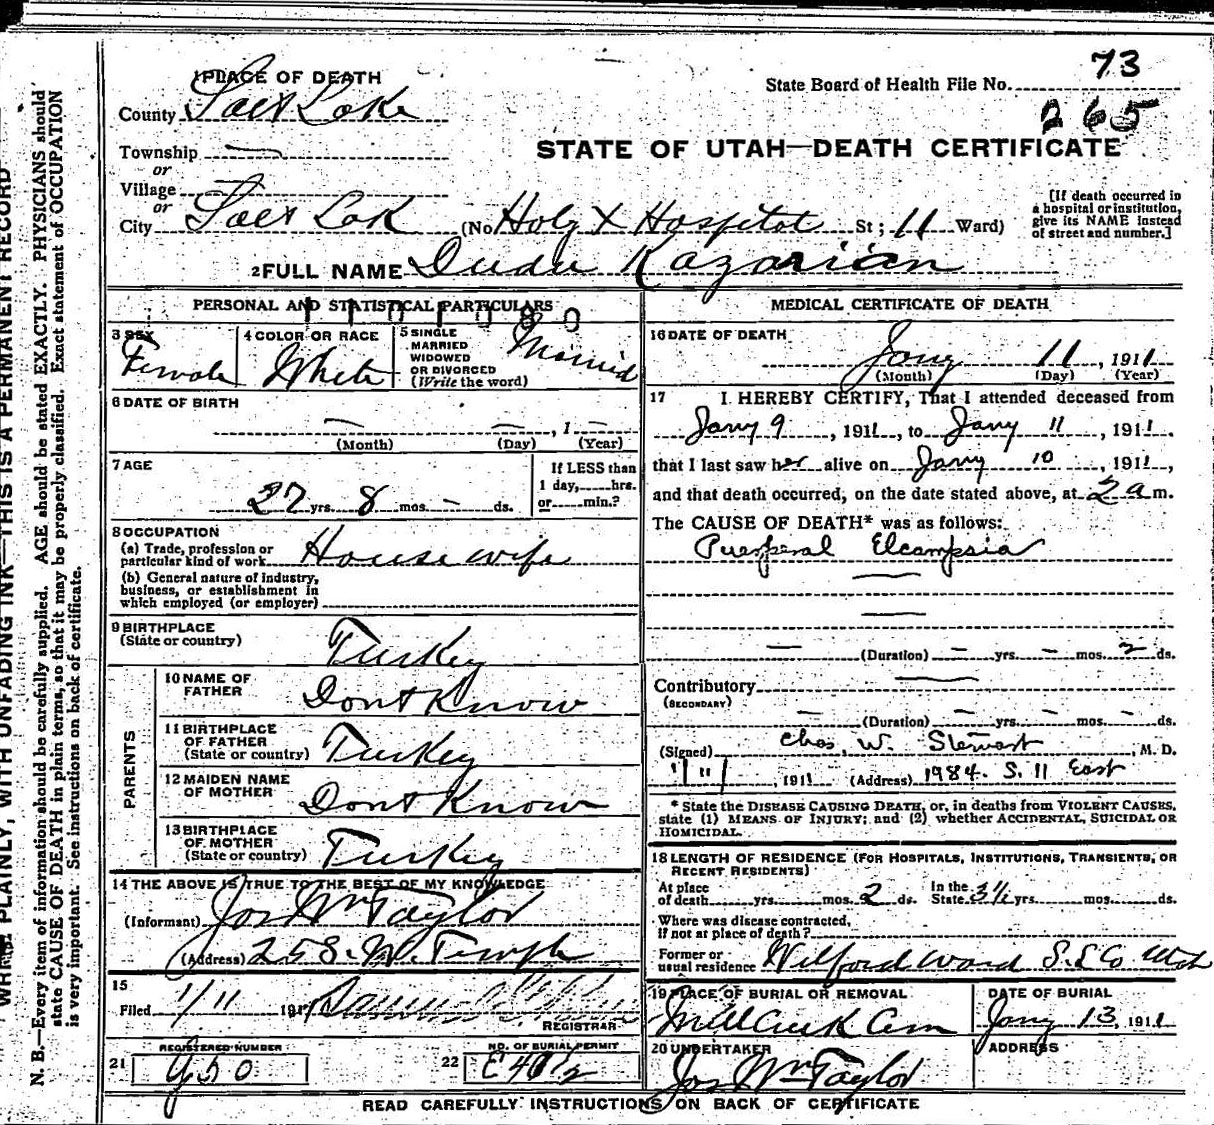 73
State Board of Health File No.
265
1 PLACE OF DEATH
County Salt Lake
STATE OF UTAH—DEATH CERTIFICATE
Township —
or
Village
or
City Salt Lak (No Holy X Hospital St; 11 Ward)
[If death occurred in a hospital or institution, give its NAME instead of street and number.]
2 FULL NAME Dudu Kazarian
PERSONAL AND STATISTICAL PARTICULARS
1101080
3 SEX Female
4 COLOR OR RACE White
5 SINGLE
MARRIED
WIDOWED
OR DIVORCED
(Write the word)
Married
6 DATE OF BIRTH
— — , 1 —
(Month) (Day) (Year)
7 AGE
27 yrs. 8 mos. — ds.
If LESS than
1 day, hrs.
or min.?
8 OCCUPATION
(a) Trade, profession or
particular kind of work House wife
(b) General nature of industry,
business, or establishment in
which employed (or employer)
9 BIRTHPLACE
(State or country) Turkey
PARENTS
10 NAME OF
FATHER Dont Know
11 BIRTHPLACE
OF FATHER
(State or country) Turkey
12 MAIDEN NAME
OF MOTHER Dont Know
13 BIRTHPLACE
OF MOTHER
(State or country) Turkey
14 THE ABOVE IS TRUE TO THE BEST OF MY KNOWLEDGE
(Informant) Jos Wm Taylor
(Address) 258. W. Temple
15
Filed 1/11 191
REGISTRAR
21 REGISTERED NUMBER
950
22 NO. OF BURIAL PERMIT
E 401/2
MEDICAL CERTIFICATE OF DEATH
16 DATE OF DEATH
Jany 11, 1911
(Month) (Day) (Year)
17 I HEREBY CERTIFY, That I attended deceased from
Jany 9, 1911, to Jany 11, 1911.
that I last saw her alive on Jany 10, 1911,
and that death occurred, on the date stated above, at 2 a m.
The CAUSE OF DEATH* was as follows:
Puerperal Elcampsia
—
—
— (Duration) — yrs. — mos. 2 ds.
Contributory —
(SECONDARY)
— (Duration) — yrs. — mos. — ds.
(Signed) Chas. W. Stewart, M. D.
1/11, 1911 (Address) 1984. S. 11 East
* State the DISEASE CAUSING DEATH, or, in deaths from VIOLENT CAUSES,
state (1) MEANS OF INJURY; and (2) whether ACCIDENTAL, SUICIDAL OR
HOMICIDAL.
18 LENGTH OF RESIDENCE (FOR HOSPITALS, INSTITUTIONS, TRANSIENTS, OR
RECENT RESIDENTS)
At place
of death yrs. mos. 2 ds.
In the
State 3 1/2 yrs. mos. ds.
Where was disease contracted,
if not at place of death?
Former or
usual residence Wilford Ward S. L Co. Utah
19 PLACE OF BURIAL OR REMOVAL
Mill Creek Cem
DATE OF BURIAL
Jany 13, 1911
20 UNDERTAKER
Jos Wm Taylor
ADDRESS
READ CAREFULLY INSTRUCTIONS ON BACK OF CERTIFICATE
PLAINLY, WITH UNFADING INK—THIS IS A PERMANENT RECORD
N. B.—Every item of information should be carefully supplied. AGE should be stated EXACTLY. PHYSICIANS should
state CAUSE OF DEATH in plain terms, so that it may be properly classified. Exact statement of OCCUPATION
is very important. See instructions on back of certificate.